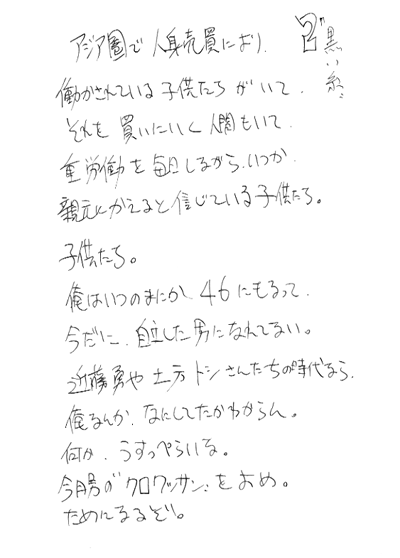 "黒い糸"
アジア圏で人身売買により、
働かされている子供たちがいて、
それを買いにいく人間もいて、
重労働を毎日しながら、いつか、
親元にかえると信じている子供たち。
子供たち。
俺はいつのまにか、46にもなって、
今だに、自立した男になれてない。
近藤勇や土方トシさんたちの時代なら、
俺なんか、なにしてたかわからん。
何か、うすっぺらいな。
今月号の"クロワッサン"をよめ。
ためになるぞ。